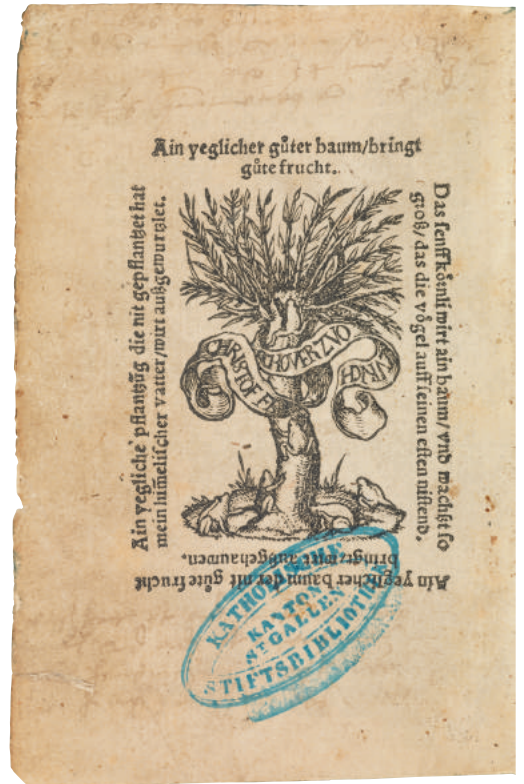 Ain yeglicher gůter baum/bringt
gůte frucht.
Das senff kőrnli wirt ain baum/ vnd wachßt so
groß/ das die vőgel auff seinen esten nistend.
Ain yeglicher baum der nit gůte frucht
bringt/wirt außgehauwen.
Ain yegliche pflantzůg die nit gepflantzet hat
mein him̃elischer vatter/wirt außgewurtzlet.
CHRISTOFFEL
FROSCHOVER ZVO
ZVRICH
KATHOLISCHE
KANTON
ST GALLEN
STIFTSBIBLIOTHEK